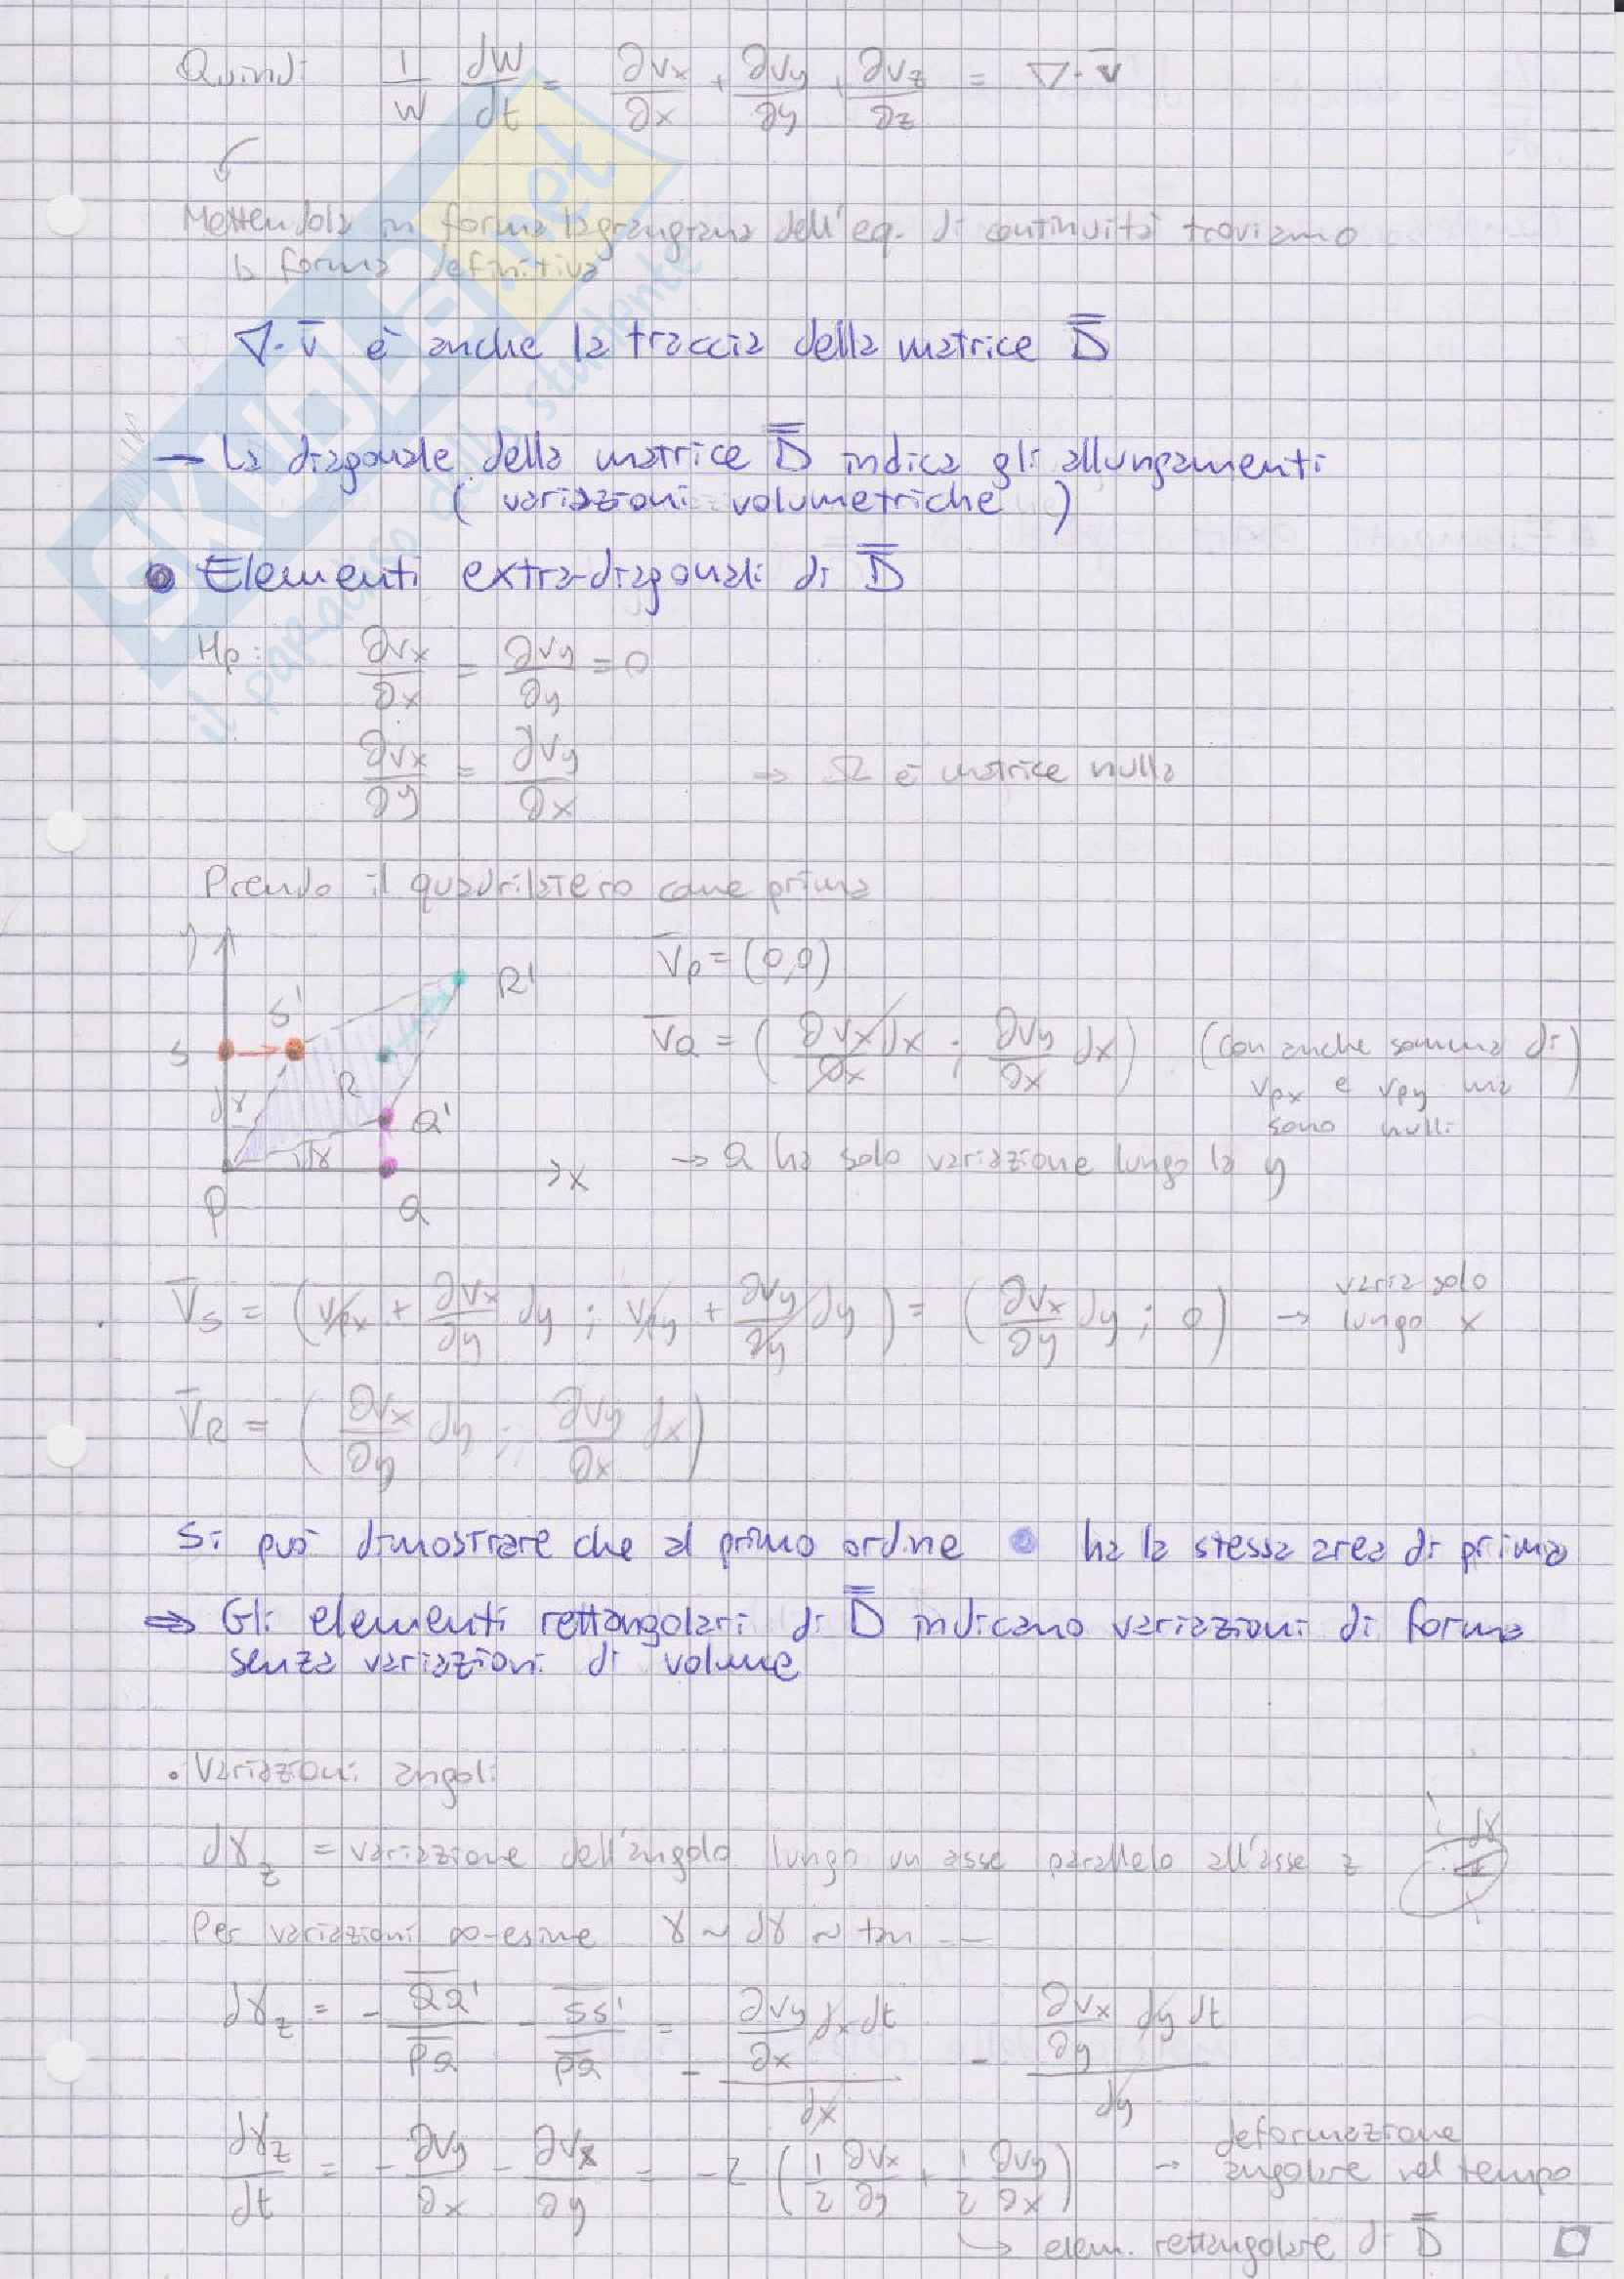 Quindi 1/W dW/dt = ∂vx/∂x + ∂vy/∂y + ∂vz/∂z = ∇·v̄
Mettendola in forma lagrangiana dell'eq. di continuità troviamo
la forma definitiva
∇·v̄ è anche la traccia della matrice D̿
→ La diagonale della matrice D̿ indica gli allungamenti
( variazioni volumetriche )
• Elementi extra-diagonali di D̿
Hp: ∂vx/∂x = ∂vy/∂y = 0
∂vx/∂y = ∂vy/∂x → Ω è matrice nulla
Prendo il quadrilatero come prima
y
S S' R' R Q' dγ dγ P Q x
v̄P = (0,0)
v̄Q = ( ∂vx/∂x dx ; ∂vy/∂x dx ) (con anche somma di
vpx e vpy ma
sono nulli)
→ Q ha solo variazione lungo la y
v̄S = ( vpx + ∂vx/∂y dy ; vpy + ∂vy/∂y dy ) = ( ∂vx/∂y dy ; 0 ) → varia solo
lungo x
v̄R = ( ∂vx/∂y dy ; ∂vy/∂x dx )
Si può dimostrare che al primo ordine ha la stessa area di prima
⇒ Gli elementi rettangolari di D̿ indicano variazioni di forma
senza variazioni di volume
• Variazioni angoli
dγz = variazione dell'angolo lungo un asse parallelo all'asse z dγ
Per variazioni ∞-esime γ ~ dγ ~ tan --
dγz = - QQ'/PQ - SS'/PQ = - (∂vy/∂x dx dt)/dx - (∂vx/∂y dy dt)/dy
dγz/dt = - ∂vy/∂x - ∂vx/∂y = -2 ( 1/2 ∂vx/∂y + 1/2 ∂vy/∂x ) → deformazione
angolare nel tempo
↳ elem. rettangolare di D̿
SKUOLA.net
il paradiso dello studente